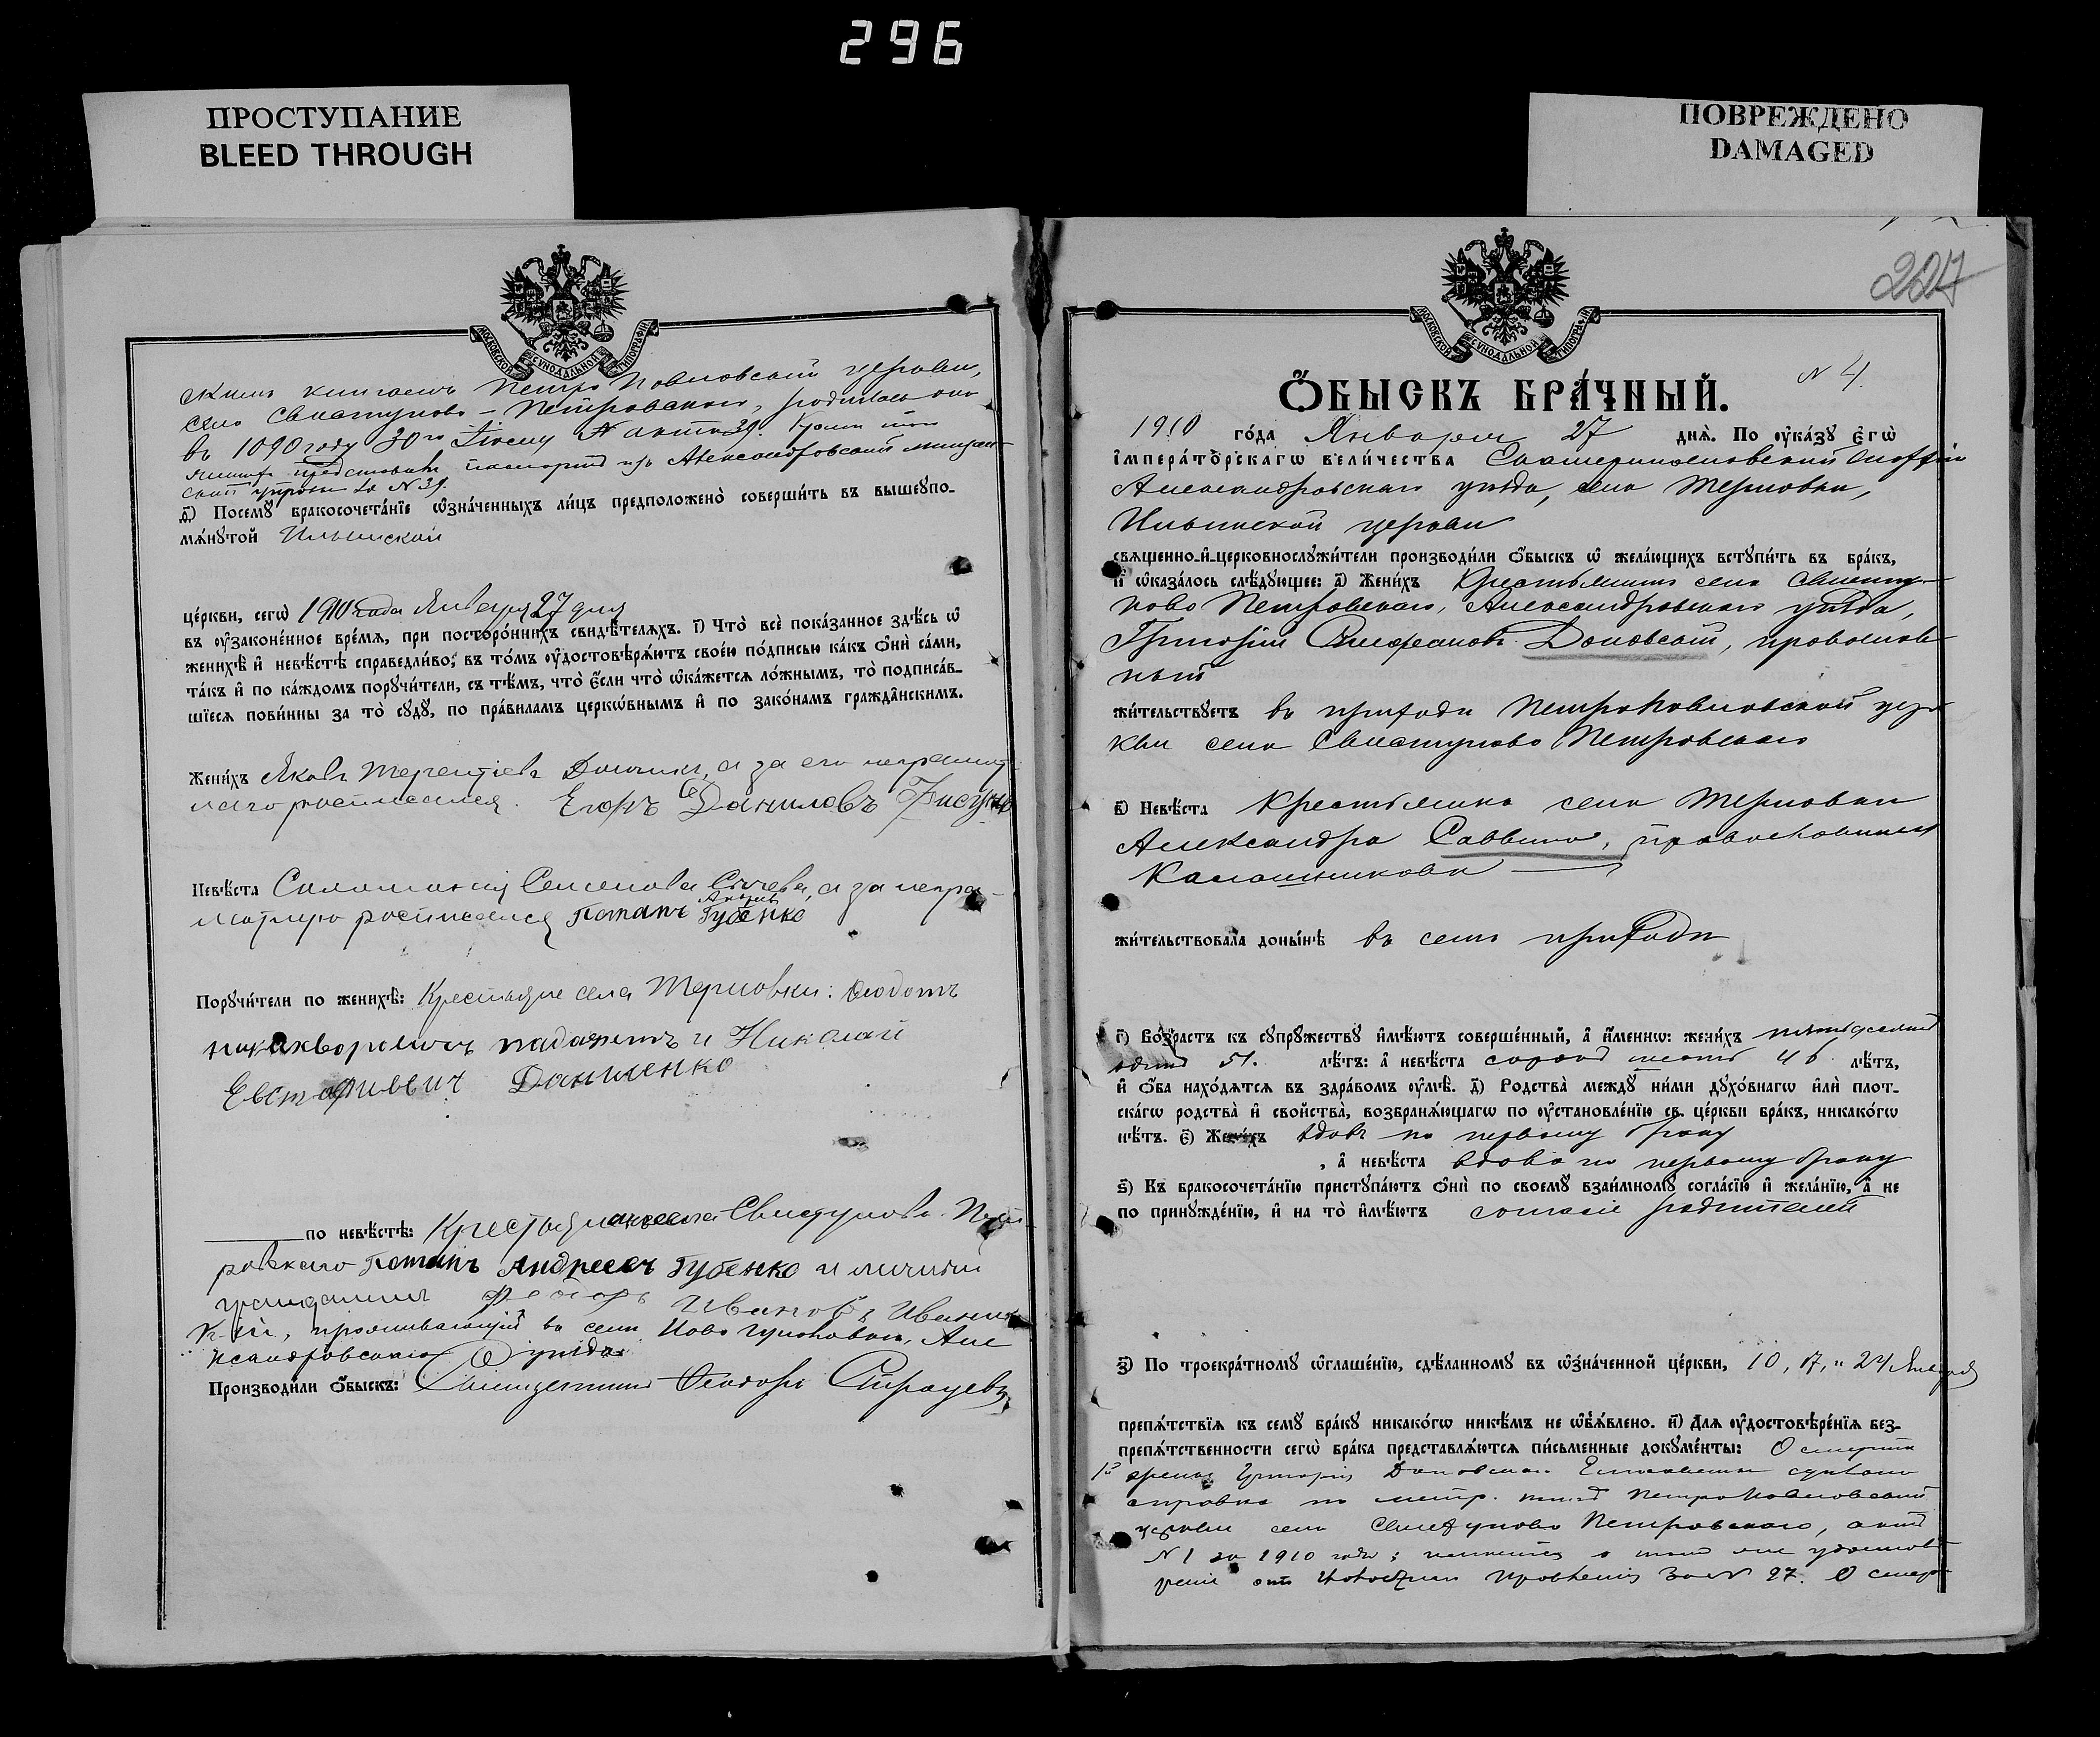 296
ПРОСТУПАНИЕ
BLEED THROUGH
ПОВРЕЖДЕНО
DAMAGED
МОСКОВСКОЙ СУНОДАЛЬНОЙ ТИПОГРАФІИ
книгамъ Петро Павловской церкви,
села Свистуново-Петровскаго, родилась она
въ 1890 году 30го №
паспортъ Александровской мѣщан-
ской за № 39.
д҃) Посемꙋ̀ бракосочета́нїе ѡ҆зна́ченныхъ ли́цъ предположено̀ соверши́ть въ вышеꙋпо-
мѧ́нꙋтой Ильинской
це́ркви, сегѡ̀ 1910 года Января 27 дня
въ ᲂу҆законе́нное вре́мѧ, при посторо́ннихъ свидѣ́телѧхъ. і҃) Что̀ всѐ пока́занное здѣ́сь ѡ҆
женихѣ̀ и҆ невѣ́стѣ справедли́во, въ то́мъ ᲂу҆достовѣрѧ́ютъ свое́ю по́дписью ка́къ ѻ҆нѝ са́ми,
та́къ и҆ по ка́ждомъ порꙋчи́тели, съ тѣ́мъ, что̀ є҆́сли что̀ ѡ҆ка́жетсѧ ло́жнымъ, то̀ подписа́в-
шїесѧ пови́нны за то̀ сꙋдꙋ̀, по пра́виламъ церко́внымъ и҆ по зако́намъ гражда́нскимъ.
Жени́хъ Яковъ Терентіевъ а за его неграмот
наго росписался. Егоръ Даниловъ
Невѣ́ста Семенова а за негра-
мотную росписался Потапъ Андрѣевъ Губенко
Порꙋчи́тели по женихѣ̀: Крестьяне села Терновки: Ѳеодотъ
и Николай
Евстафиевич Даниленко
по невѣ́стѣ: Крестьянинъ села Свистуново-Пет-
ровскаго Потапъ Андреевъ Губенко и личный
гражданинъ Федоръ Ивановъ
проживающій въ селѣ Ново Гуполовки, Але
ксандровскаго уѣзда
Производи́ли ѻ҆́быскъ: Священникъ Ѳеодоръ
МОСКОВСКОЙ СУНОДАЛЬНОЙ ТИПОГРАФІИ
227
№ 4.
Ѻ҆́БЫСКЪ БРА́ЧНЫЙ.
1910 го́да Января 27 днѧ̀. По ᲂу҆ка́зꙋ є҆гѡ̀
і҆мпера́торскагѡ вели́чества Екатеринославской епархіи
Александровскаго уѣзда, села Терновки,
Ильинской церкви
свѧщенно-и҆-церковнослꙋжи́тели производи́ли ѻ҆́быскъ ѡ҆ жела́ющихъ встꙋпи́ть въ бра́къ,
и҆ ѡ҆каза́лось слѣ́дꙋющее: а҃) Жени́хъ Крестьянинъ села Свисту-
ново Петровскаго, Александровскаго уѣзда,
Григорій Стефановъ Доновской, православ
ный
жи́тельствꙋетъ въ приходѣ Петро Павловской цер
кви села Свистуново Петровскаго
в҃) Невѣ́ста Крестьянка села Терновки
Александра Саввина, православная
Калашникова
жи́тельствовала доны́нѣ въ семъ приходѣ
г҃) Во́зрастъ къ сꙋпрꙋжествꙋ и҆мѣ́ютъ соверше́нный, а҆ и҆́меннѡ: жени́хъ пятьдесятъ
одинъ 51. лѣ́тъ: а҆ невѣ́ста сорокъ шесть 46 лѣ́тъ,
и҆ ѻ҆́ба нахо́дѧтсѧ въ здра́вомъ ᲂу҆мѣ̀. д҃) Родства̀ междꙋ̀ ни́ми дꙋхо́внагѡ и҆лѝ плот-
ска́гѡ родства̀ и҆ сво́йства, возбранѧ́ющагѡ по ᲂу҆становле́нїю св. це́ркви бра́къ, никако́гѡ
нѣ́тъ. є҃) Жени́хъ вдовъ по первому браку
, а҆ невѣ́ста вдова по первому браку
ѕ҃) Къ бракосочета́нїю пристꙋпа́ютъ ѻ҆нѝ по своемꙋ̀ взаи́мномꙋ согла́сїю и҆ жела́нїю, а҆ не
по принꙋжде́нїю, и҆ на то̀ и҆мѣ́ютъ согласіе родителей
з҃) По троекра́тномꙋ ѡ҆глаше́нїю, сдѣ́ланномꙋ въ ѡ҆зна́ченной це́ркви, 10, 17, и 24 Января
препѧ́тствїѧ къ семꙋ̀ бра́кꙋ никако́гѡ никѣ́мъ не ѡ҆б̾ѧ́влено. и҃) Длѧ ᲂу҆достовѣре́нїѧ без-
препѧ́тственности сегѡ̀ бра́ка представлѧ́ютсѧ пи́сьменные докꙋме́нты: О смерти
1й жены Григорія Доновского Елисаветы сдѣлана
справка по метр. книгѣ Петро Павловской
церкви села Свистуново Петровскаго, актъ
№ 1 за 1910 годъ; удостовѣ
реніе отъ Правленія за № 27. О смер-